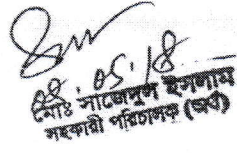 ০৪.০৫.১৪
মোঃ সাজেদুল ইসলাম
সহকারী পরিচালক (অর্থ)